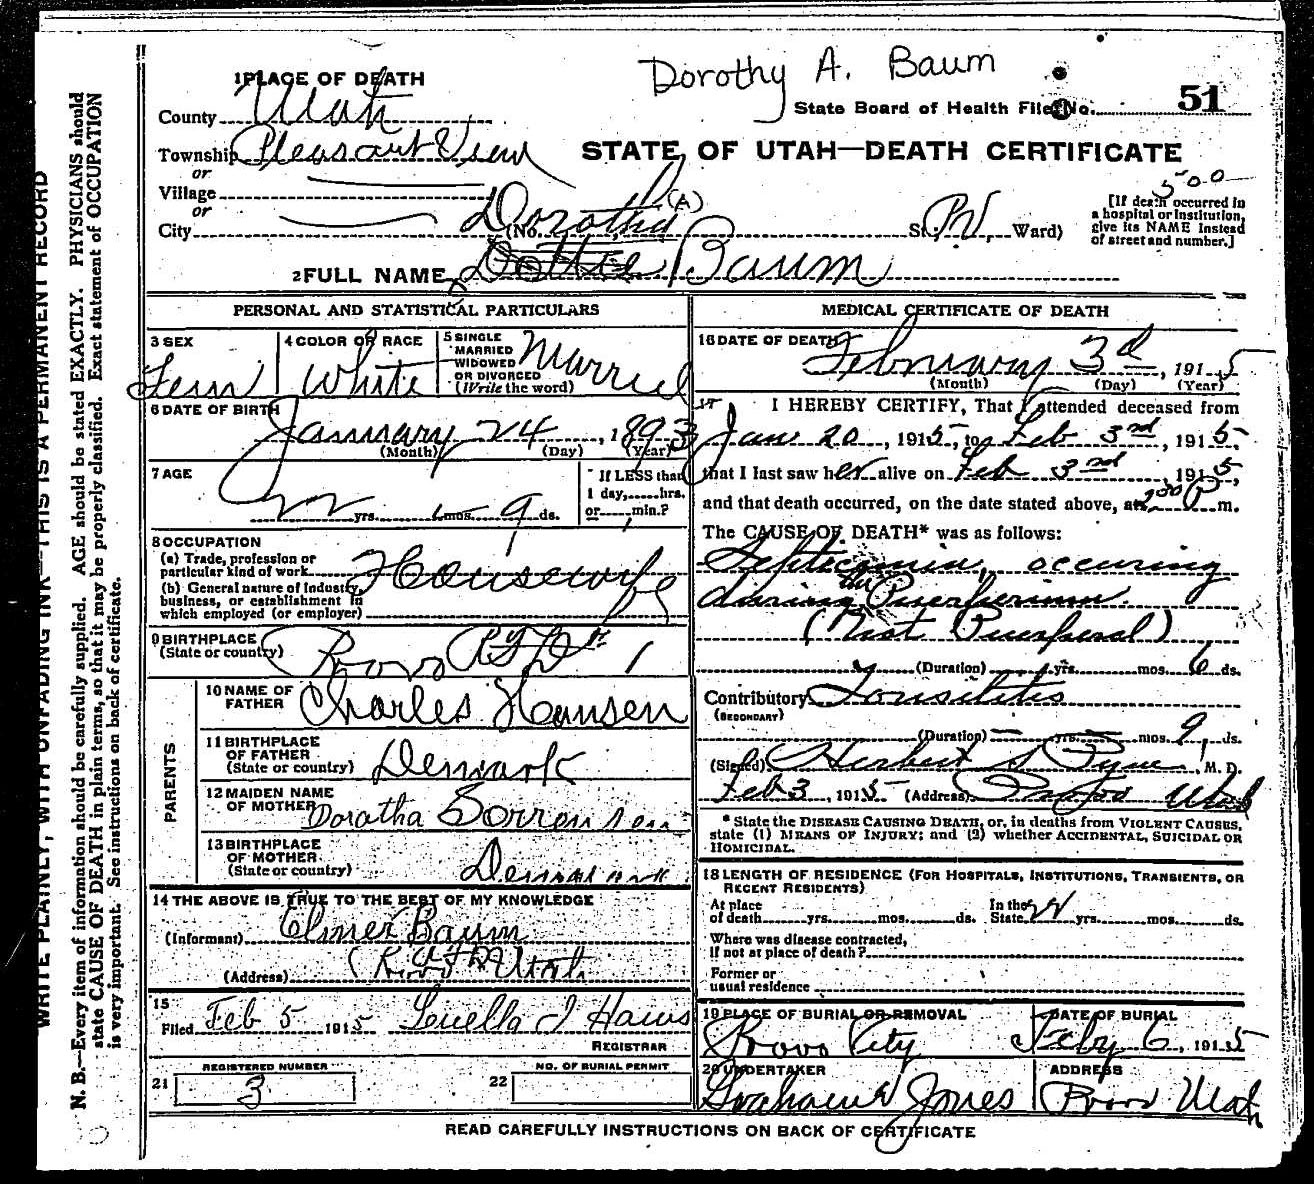 Dorothy A. Baum
1 PLACE OF DEATH
State Board of Health File No. 51
County Utah
Township Pleasant View
STATE OF UTAH—DEATH CERTIFICATE
or
Village
or
500
[If death occurred in
a hospital or institution,
give its NAME instead
of street and number.]
City (No. St. Ward)
Dorotha (A)
2 FULL NAME Dottie Baum
PERSONAL AND STATISTICAL PARTICULARS
3 SEX
Fem
4 COLOR OR RACE
White
5 SINGLE
MARRIED
WIDOWED
OR DIVORCED
(Write the word)
Married
6 DATE OF BIRTH
January 24, 1893
(Month) (Day) (Year)
7 AGE
22 yrs. mos. 9 ds.
If LESS than
1 day,......hrs.
or......min.?
8 OCCUPATION
(a) Trade, profession or
particular kind of work
Housewife
(b) General nature of Industry,
business, or establishment in
which employed (or employer)
9 BIRTHPLACE
(State or country)
Provo
PARENTS
10 NAME OF
FATHER
Charles Hansen
11 BIRTHPLACE
OF FATHER
(State or country)
Denmark
12 MAIDEN NAME
OF MOTHER
Doratha Sorrensen
13 BIRTHPLACE
OF MOTHER
(State or country)
Denmark
14 THE ABOVE IS TRUE TO THE BEST OF MY KNOWLEDGE
(Informant) Elmer Baum
(Address) Utah
15
Filed Feb 5 1915 Luella J Haws
REGISTRAR
REGISTERED NUMBER
21 3
NO. OF BURIAL PERMIT
22
MEDICAL CERTIFICATE OF DEATH
16 DATE OF DEATH
February 3d, 1915
(Month) (Day) (Year)
17 I HEREBY CERTIFY, That I attended deceased from
Jan 20, 1915, to Feb 3rd, 1915,
that I last saw her alive on Feb 3rd, 1915,
and that death occurred, on the date stated above, at 2:30 P m.
The CAUSE OF DEATH* was as follows:
Septicemia, occuring
during the Puerperium.
(Not Puerperal)
(Duration) yrs. mos. 6 ds.
Contributory Tonsilitis
(SECONDARY)
(Duration) yrs. mos. 9 ds.
(Signed) Herbert S Pyne, M. D.
Feb 3, 1915 (Address) Provo Utah
* State the DISEASE CAUSING DEATH, or, in deaths from VIOLENT CAUSES,
state (1) MEANS OF INJURY; and (2) whether ACCIDENTAL, SUICIDAL OR
HOMICIDAL.
18 LENGTH OF RESIDENCE (FOR HOSPITALS, INSTITUTIONS, TRANSIENTS, OR
RECENT RESIDENTS)
At place
of death......yrs......mos......ds.
In the
State 22 yrs......mos......ds.
Where was disease contracted,
if not at place of death?
Former or
usual residence
19 PLACE OF BURIAL OR REMOVAL
Provo City
DATE OF BURIAL
Feby 6, 1915
20 UNDERTAKER
Graham & Jones
ADDRESS
Provo Utah
READ CAREFULLY INSTRUCTIONS ON BACK OF CERTIFICATE
WRITE PLAINLY, WITH UNFADING INK—THIS IS A PERMANENT RECORD
N. B.—Every item of information should be carefully supplied. AGE should be stated EXACTLY. PHYSICIANS should
state CAUSE OF DEATH in plain terms, so that it may be properly classified. Exact statement of OCCUPATION
is very important. See instructions on back of certificate.